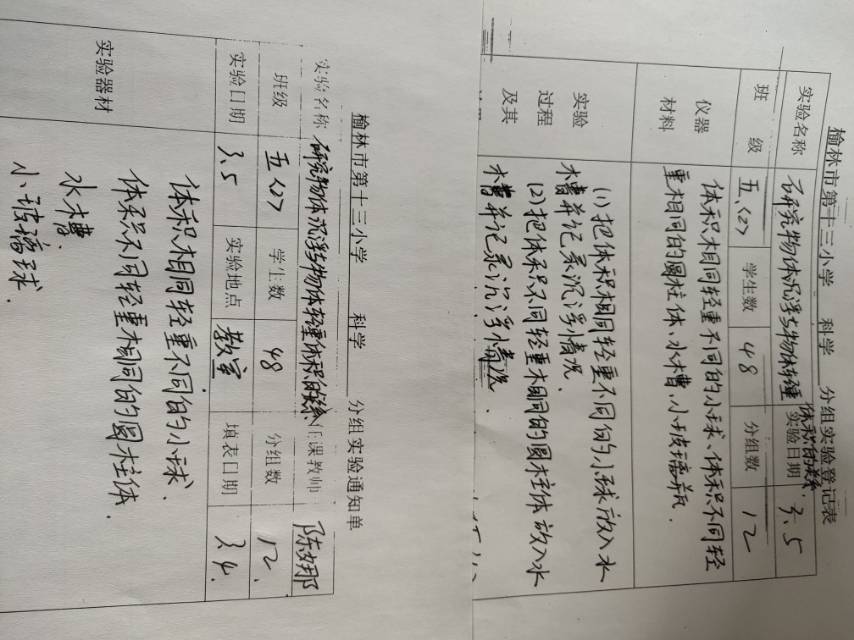 榆林市第十三小学 科学 分组实验登记表
实验名称 研究物体沉浮与物体轻重体积的关系 实验日期 3.5
班级 五〈2〉 学生数 48 分组数 12
仪器材料 体积相同轻重不同的小球、体积不同轻
重相同的圆柱体、水槽、小玻璃瓶.
实验过程及其
(1) 把体积相同轻重不同的小球放入水
槽并记录沉浮情况.
(2) 把体积不同轻重相同的圆柱体放入水
槽并记录沉浮情况.
榆林市第十三小学 科学 分组实验通知单
实验名称 研究物体沉浮与物体轻重体积的关系 任课教师 陈娜
班级 五〈2〉 学生数 48 分组数 12.
实验日期 3.5 实验地点 教室 填表日期 3.4.
实验器材
体积相同轻重不同的小球.
体积不同轻重相同的圆柱体.
水槽.
小玻璃球.